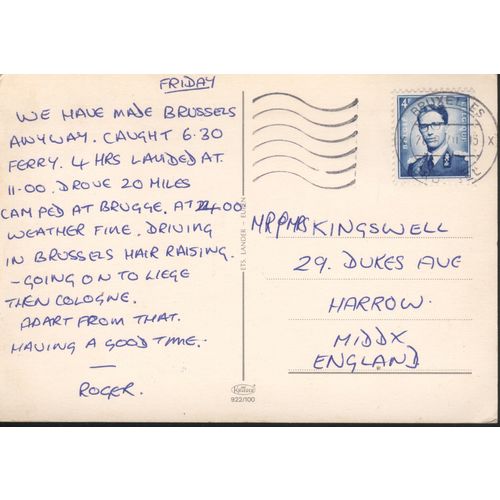 FRIDAY
WE HAVE MADE BRUSSELS
ANYWAY. CAUGHT 6.30
FERRY. 4 HRS LANDED AT
11.00. DROVE 20 MILES
CAMPED AT BRUGGE. AT 24.00
WEATHER FINE. DRIVING
IN BRUSSELS HAIR RAISING.
- GOING ON TO LIEGE
THEN COLOGNE.
APART FROM THAT.
HAVING A GOOD TIME.
ROGER.
ETS. LANDER - EUPEN
922/100
4F
BRUXELLES
X
MR & MRS KINGSWELL
29. DUKES AVE
HARROW.
MIDDX
ENGLAND